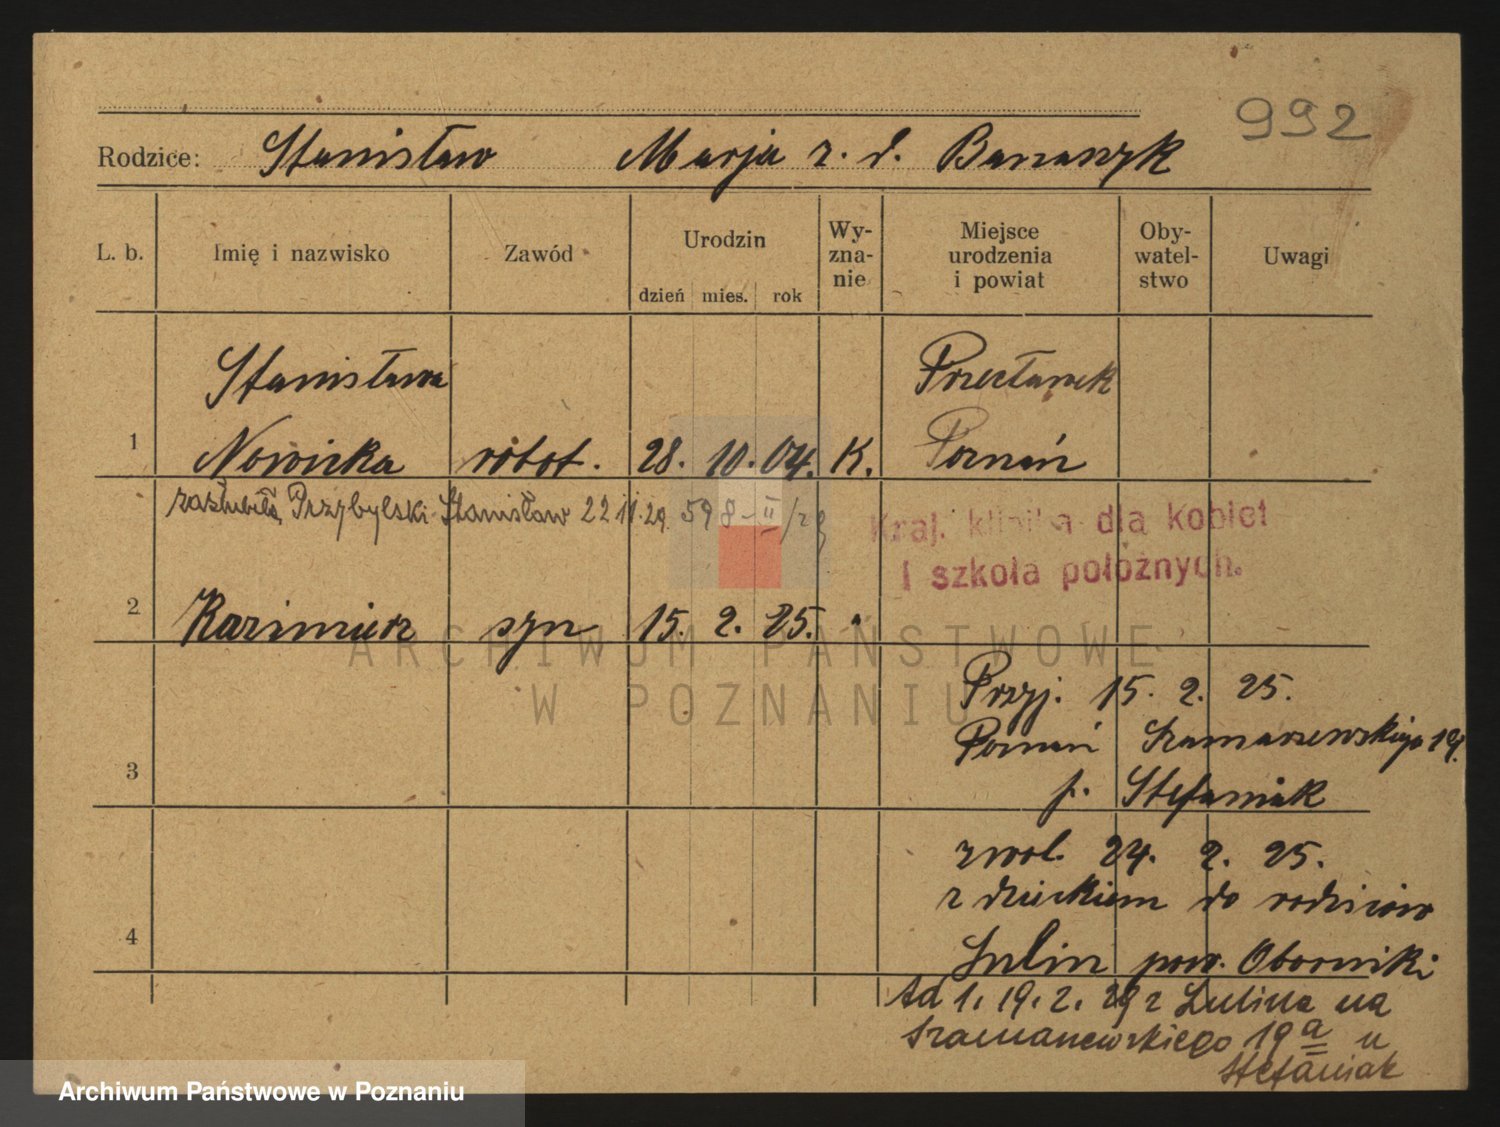 992
Rodzice: Stanisław Marja z. d. Banaszyk
L. b. Imię i nazwisko Zawód Urodzin dzień mies. rok Wy-zna-nie Miejsce urodzenia i powiat Oby-watel-stwo Uwagi
Stanisława Przecławek
1 Nowicka robot. 28. 10. 04. K. Poznań
zaślubiła Przybylski Stanisław 22 11. 29. 598-II/29
Kraj. klinika dla kobiet
i szkoła położnych.
2 Kazimierz syn 15. 2. 25. "
ARCHIWUM PAŃSTWOWE
W POZNANIU
Przyj. 15. 2. 25.
Poznań Szamarzewskiego 19.
3 p. Stefaniak
zwol. 24. 2. 25.
z dzieckiem do rodziców
4 Lulin pow. Oborniki
Ad 1. 19. 2. 29 z Lulina na
Szamarzewskiego 19a u
Stefaniak
Archiwum Państwowe w Poznaniu